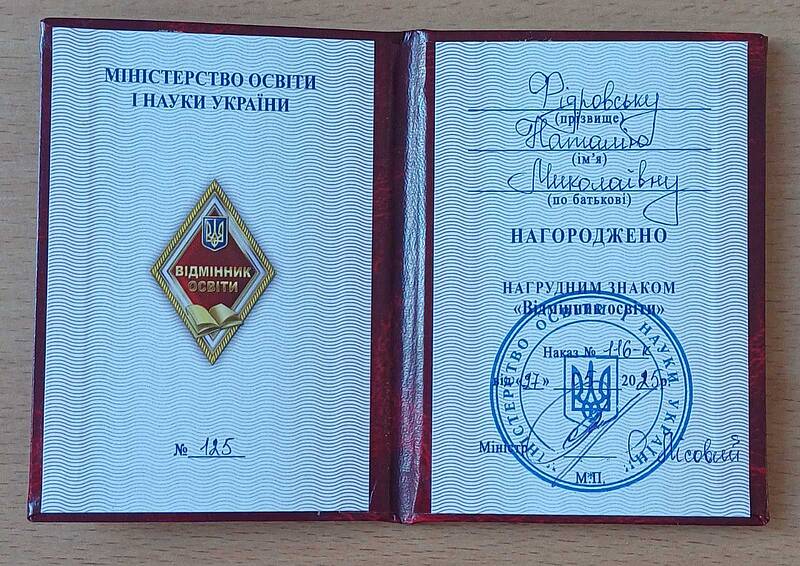 МІНІСТЕРСТВО ОСВІТИ
І НАУКИ УКРАЇНИ
ВІДМІННИК
ОСВІТИ
№ 125
Фідровську
(прізвище)
Наталію
(ім’я)
Миколаївну
(по батькові)
НАГОРОДЖЕНО
НАГРУДНИМ ЗНАКОМ
«Відмінник освіти»
Наказ № 116-к
від «27» 2025р.
Міністр О. Лісовий
М.П.
МІНІСТЕРСТВО ОСВІТИ І НАУКИ УКРАЇНИ